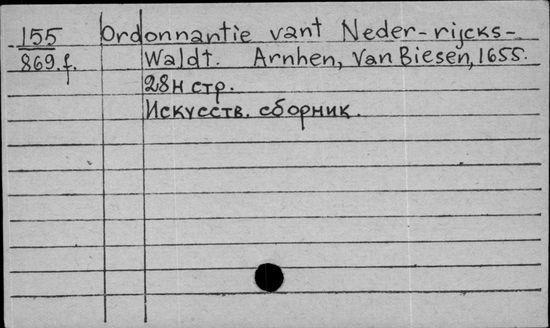 155 Ordonnantie vant Neder-rijcks-
869.f. Waldt. Arnhen, Van Biesen, 1655.
28н стр.
Искусств. сборник.